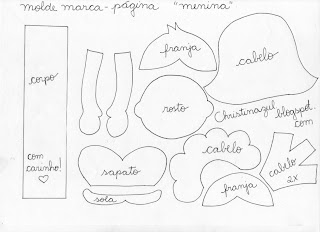 molde marca-página "menina"
franja
cabelo
corpo
rosto
Christinazul
blogspot.
com
com
carinho!
cabelo
sapato
cabelo
2x
franja
sola